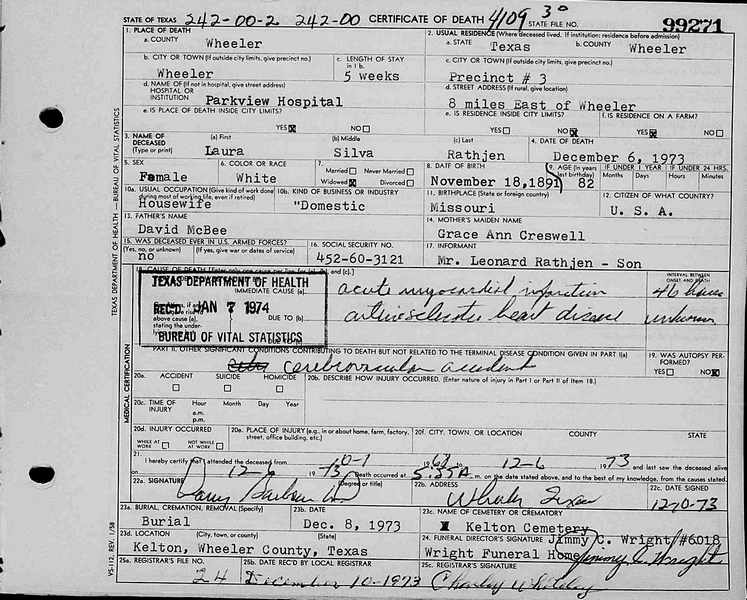 STATE OF TEXAS 242-00-2 242-00 CERTIFICATE OF DEATH 4109 30 STATE FILE NO. 99271
1. PLACE OF DEATH
a. COUNTY Wheeler
2. USUAL RESIDENCE (Where deceased lived. If institution: residence before admission)
a. STATE Texas b. COUNTY Wheeler
b. CITY OR TOWN (If outside city limits, give precinct no.) Wheeler
c. LENGTH OF STAY in 1 b. 5 weeks
c. CITY OR TOWN (If outside city limits, give precinct no.) Precinct # 3
d. NAME OF (If not in hospital, give street address) HOSPITAL OR INSTITUTION Parkview Hospital
d. STREET ADDRESS (If rural, give location) 8 miles East of Wheeler
e. IS PLACE OF DEATH INSIDE CITY LIMITS? YES NO
e. IS RESIDENCE INSIDE CITY LIMITS? YES NO
f. IS RESIDENCE ON A FARM? YES NO
3. NAME OF DECEASED (Type or print)
(a) First Laura (b) Middle Silva (c) Last Rathjen
4. DATE OF DEATH December 6, 1973
5. SEX Female
6. COLOR OR RACE White
7. Married Never Married Widowed Divorced
8. DATE OF BIRTH November 18, 1891
9. AGE (In years last birthday) 82
IF UNDER 1 YEAR Months Days
IF UNDER 24 HRS. Hours Minutes
10a. USUAL OCCUPATION (Give kind of work done during most of working life, even if retired) Housewife
10b. KIND OF BUSINESS OR INDUSTRY "Domestic
11. BIRTHPLACE (State or foreign country) Missouri
12. CITIZEN OF WHAT COUNTRY? U. S. A.
13. FATHER'S NAME David McBee
14. MOTHER'S MAIDEN NAME Grace Ann Creswell
15. WAS DECEASED EVER IN U.S. ARMED FORCES? (Yes, no, or unknown) (If yes, give war or dates of service) no
16. SOCIAL SECURITY NO. 452-60-3121
17. INFORMANT Mr. Leonard Rathjen - Son
18. CAUSE OF DEATH
INTERVAL BETWEEN ONSET AND DEATH
TEXAS DEPARTMENT OF HEALTH
REC'D. JAN 7 1974
BUREAU OF VITAL STATISTICS
IMMEDIATE CAUSE (a) acute myocardial infarction
DUE TO (b) arteriosclerotic heart disease unknown
above cause (a), stating the under-
DUE TO (c)
PART II. OTHER SIGNIFICANT CONDITIONS CONTRIBUTING TO DEATH BUT NOT RELATED TO THE TERMINAL DISEASE CONDITION GIVEN IN PART I(a)
cerebrovascular accident
19. WAS AUTOPSY PERFORMED? YES NO
20a. ACCIDENT SUICIDE HOMICIDE
20b. DESCRIBE HOW INJURY OCCURRED. (Enter nature of injury in Part I or Part II of Item 18.)
20c. TIME OF INJURY Hour Month Day Year a.m. p.m.
20d. INJURY OCCURRED WHILE AT WORK NOT WHILE AT WORK
20e. PLACE OF INJURY (e.g., in or about home, farm, factory, street, office building, etc.)
20f. CITY, TOWN, OR LOCATION COUNTY STATE
21. I hereby certify that I attended the deceased from 10-1 1963 to 12-6 1973 and last saw the deceased alive
on 12-6 1973 Death occurred at m. on the date stated above, and to the best of my knowledge, from the causes stated.
22a. SIGNATURE (Degree or title)
22b. ADDRESS Wheeler Texas
22c. DATE SIGNED 12-10-73
23a. BURIAL, CREMATION, REMOVAL (Specify) Burial
23b. DATE Dec. 8, 1973
23c. NAME OF CEMETERY OR CREMATORY Kelton Cemetery
23d. LOCATION (City, town, or county) (State) Kelton, Wheeler County, Texas
24. FUNERAL DIRECTOR'S SIGNATURE Jimmy C. Wright/#6018
Wright Funeral Home Jimmy C. Wright
25a. REGISTRAR'S FILE NO. 24
25b. DATE REC'D BY LOCAL REGISTRAR December 10-1973
25c. REGISTRAR'S SIGNATURE Charley
TEXAS DEPARTMENT OF HEALTH — BUREAU OF VITAL STATISTICS
MEDICAL CERTIFICATION
VS-112, REV. 1/58